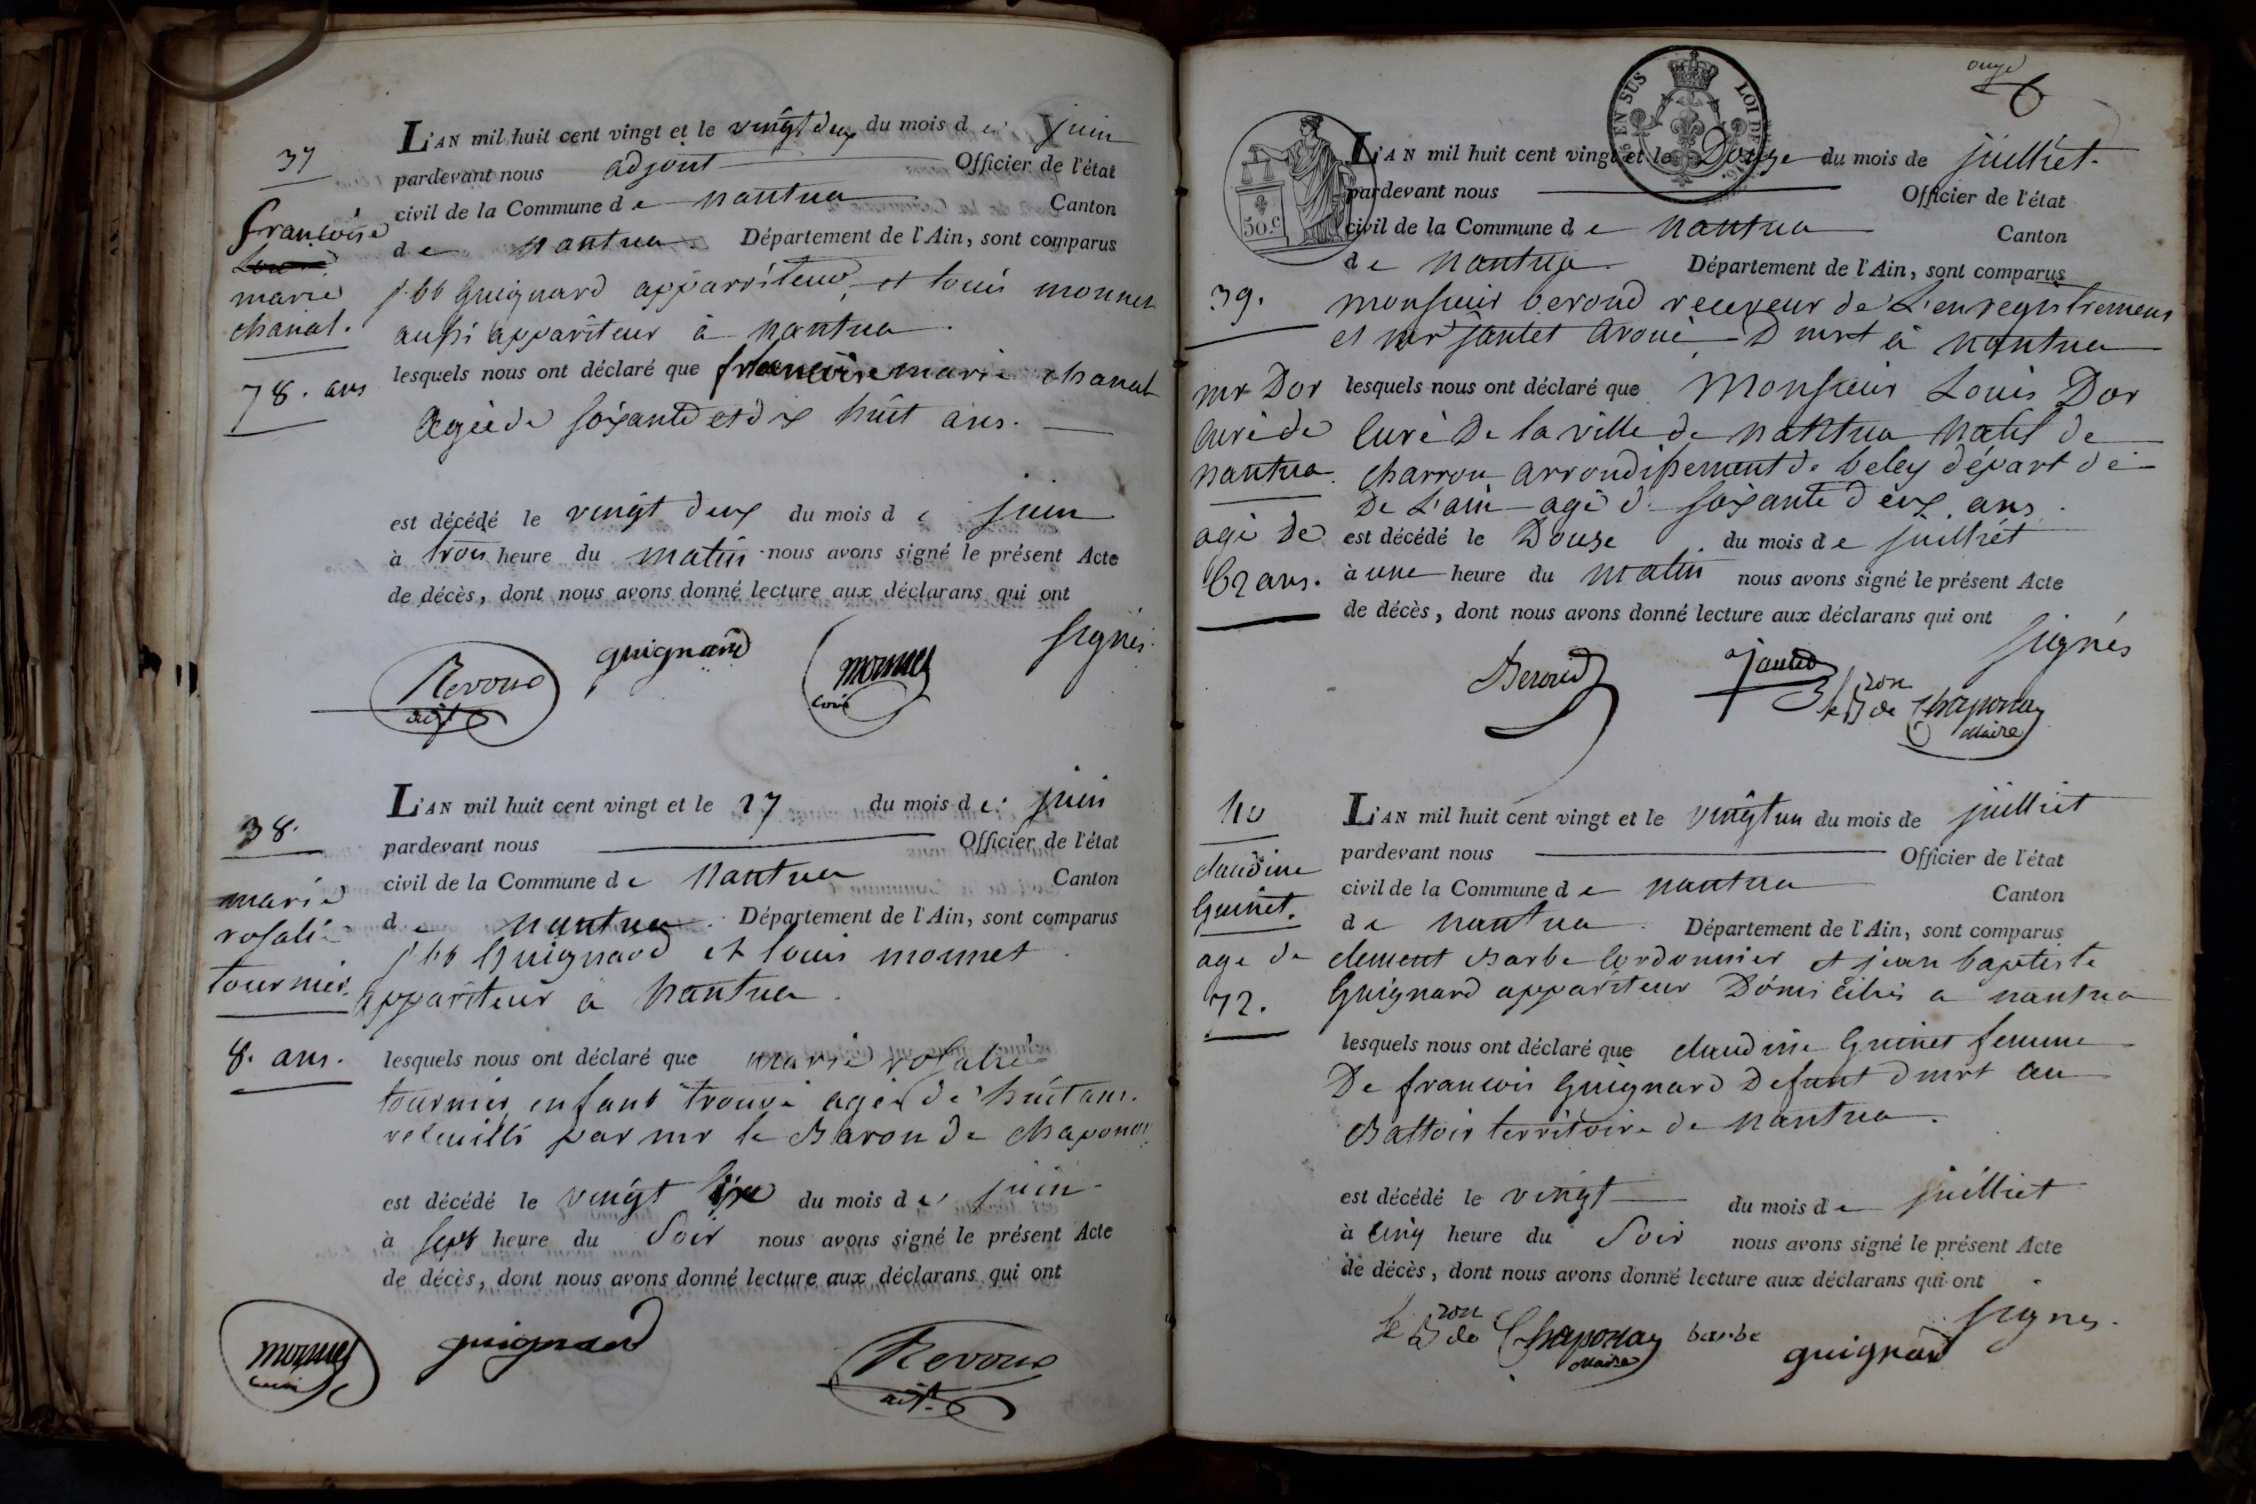 37
françoise
marie
chanal.
78. ans
L'AN mil huit cent vingt et le vingt deux du mois de juin
pardevant nous adjoint Officier de l'état
civil de la Commune de nantua Canton
de nantua Département de l'Ain, sont comparus
j. bte Guignard apparriteur, et louis monnet
aussi appariteur à nantua.
lesquels nous ont déclaré que françoise marie chanal
agée de soixante et dix huit ans.
est décédé le vingt deux du mois de juin
à trois heure du matin nous avons signé le présent Acte
de décès, dont nous avons donné lecture aux déclarans qui ont
signés.
guignard monnet
adjt
38.
marie
rosalie
tournier.
8. ans.
L'AN mil huit cent vingt et le 27 du mois de juin
pardevant nous Officier de l'état
civil de la Commune de nantua Canton
de nantua. Département de l'Ain, sont comparus
j. bte Guignard et louis monnet
appariteur à nantua.
lesquels nous ont déclaré que marie rosalie
tournier enfant trouvé agée de huit ans.
recuilli par mr le Baron de chaponay
est décédé le vingt six du mois de juin
à sept heure du soir nous avons signé le présent Acte
de décès, dont nous avons donné lecture aux déclarans qui ont
monnet guignard
adjt.
onze
EN SUS LOI DE
50.c
39.
mr Dor
curé de
nantua.
agé de
62 ans.
L'AN mil huit cent vingt et le Douze du mois de juilliet.
pardevant nous Officier de l'état
civil de la Commune de nantua Canton
de nantua. Département de l'Ain, sont comparus
monsieur beroud receveur de L'enregistrement
et mr jantet avoué Dmrt à nantua
lesquels nous ont déclaré que Monsieur Louis Dor
curé De la ville de nantua natif de
charron arrondissement de beley départ de
De L'ain agé de soixante deux ans.
est décédé le Douze du mois de juilliet
à une heure du matin nous avons signé le présent Acte
de décès, dont nous avons donné lecture aux déclarans qui ont
signés
Beroud jantet
le Bron de Chaponay
Maire
40
claudine
Guinet.
age de
72.
L'AN mil huit cent vingt et le vingt un du mois de juilliet
pardevant nous Officier de l'état
civil de la Commune de nantua Canton
de nantua. Département de l'Ain, sont comparus
clement Barbe Cordonnier et jean baptiste
Guignard appariteur Domiciliés a nantua
lesquels nous ont déclaré que claudine Guinet femme
De francois Guignard Defunt dmrt au
Battoir territoire de nantua.
est décédé le vingt du mois de juilliet
à cinq heure du soir nous avons signé le présent Acte
de décès, dont nous avons donné lecture aux déclarans qui ont
signés.
le Bron de Chaponay barbe guignard
Maire